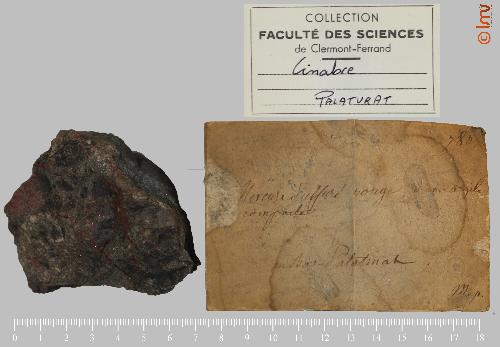 COLLECTION
FACULTÉ DES SCIENCES
de Clermont-Ferrand
Cinabre
PALATURAT
lmv
785
Mercure sulfuré rouge argile
compacte
Palatinat
0 1 2 3 4 5 6 7 8 9 10 11 12 13 14 15 16 17 18